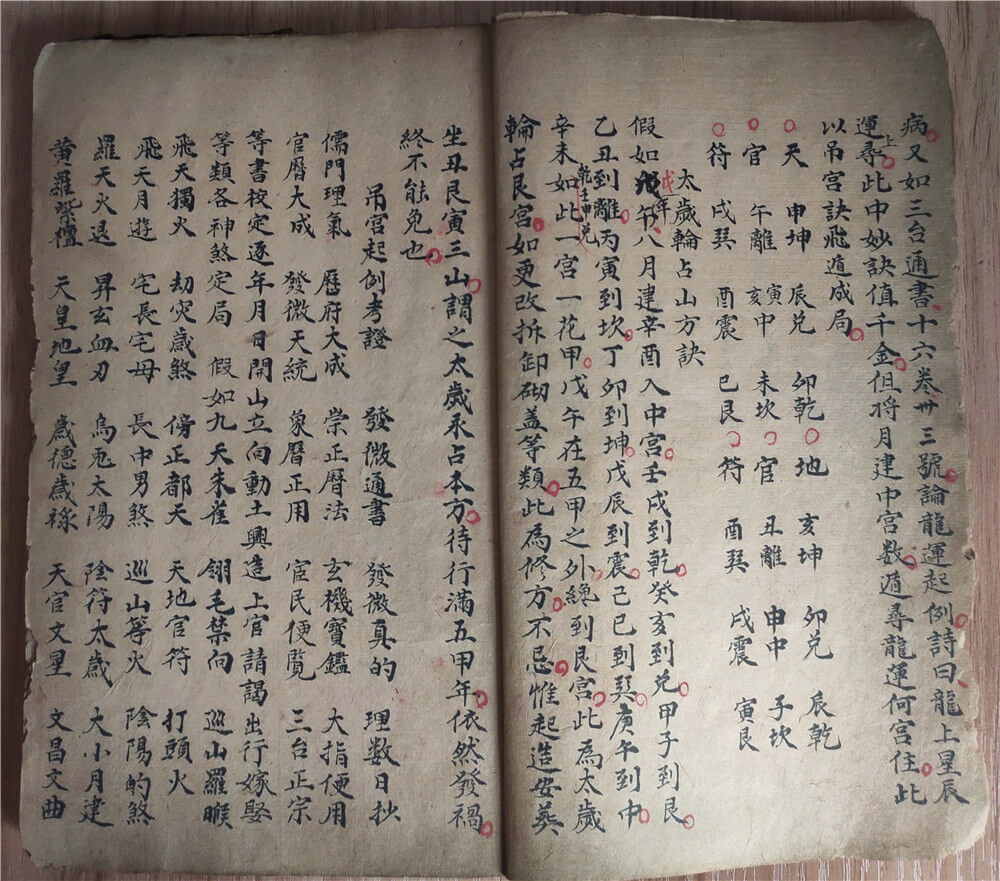 病又如三台通書十六卷卅三號論龍運起例詩曰龍上星辰
運上尋此中妙訣值千金但將月建中宮数遁尋龍運何宮住此
以吊宮訣飛遁成局
天 申坤 辰兑 卯乾 地 亥坤 卯兑 辰乾
官 午離 寅亥中 未坎 官 丑離 申中 子坎
符 戌巽 酉震 巳艮 符 酉巽 戌震 寅艮
太歲輪占山方訣
假如戊午年八月建辛酉入中宮壬戌到乾癸亥到兑甲子到艮
乙丑到離丙寅到坎丁卯到坤戊辰到震己巳到巽庚午到中
辛未乾壬申兑如此一宮一花甲戊午在五甲之外纔到艮宮此為太歲
輪占艮宮如更改拆卸砌盖等類此為修方不忌惟起造安葬
坐丑艮寅三山謂之太歲永占本方待行滿五甲年依然發禍
終不能免也
吊宮起例考證 發微通書 發微真的 理數日抄
儒門理氣 歷府大成 崇正曆法 玄機寶鑑 大指便用
官曆大成 發微天統 象曆正用 宦民便覧 三台正宗
等書校定逐年月日開山立向動土興造上官請謁出行嫁娶
等類各神煞定局 假如九天朱雀 翎毛禁向 巡山羅睺
飛天獨火 劫灾歲煞 傍正都天 天地官符 打頭火
飛天月遊 宅長宅母 長中男煞 巡山等火 陰陽的煞
羅天火退 昇玄血刃 烏兎太陽 陰符太歲 大小月建
黄羅紫檀 天皇地皇 歲德歲祿 天官文星 文昌文曲